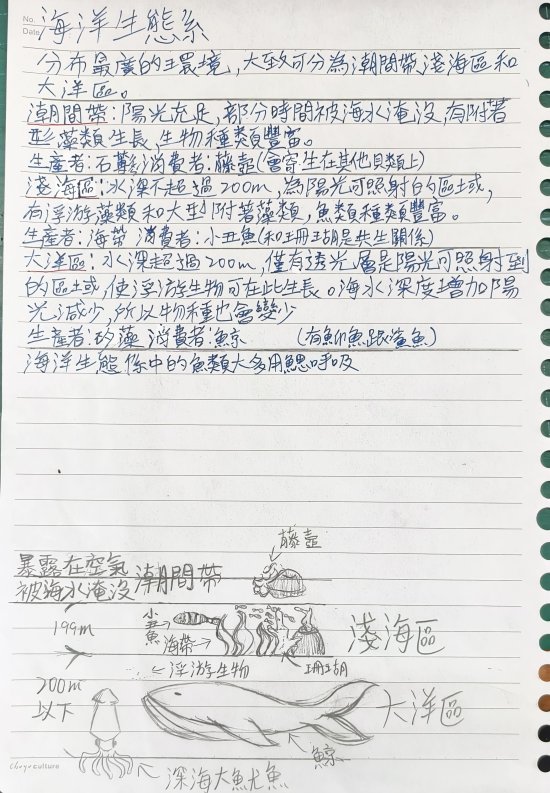 No.
Date
海洋生態系
分布最廣的環境,大致可分為潮間帶淺海區和
大洋區。
潮間帶:陽光充足,部分時間被海水淹沒,有附著
型藻類生長,生物種類豐富。
生產者:石蓴 消費者:藤壺(會寄生在其他貝類上)
淺海區:水深不超過200m,為陽光可照射的區域,
有浮游藻類和大型附著藻類,魚類種類豐富。
生產者:海帶 消費者:小丑魚(和珊瑚是共生關係)
大洋區:水深超過200m,僅有透光層是陽光可照射到
的區域,使浮游生物可在此生長。海水深度增加陽
光減少,所以物種也會變少
生產者:矽藻 消費者:鯨 (有鮣魚跟鯊魚)
海洋生態係中的魚類大多用鰓呼吸
藤壺
暴露在空氣
被海水淹沒 潮間帶
199m
小丑魚
海帶→
淺海區
←浮游生物
珊瑚
200m
以下
大洋區
鯨
深海大魷魚